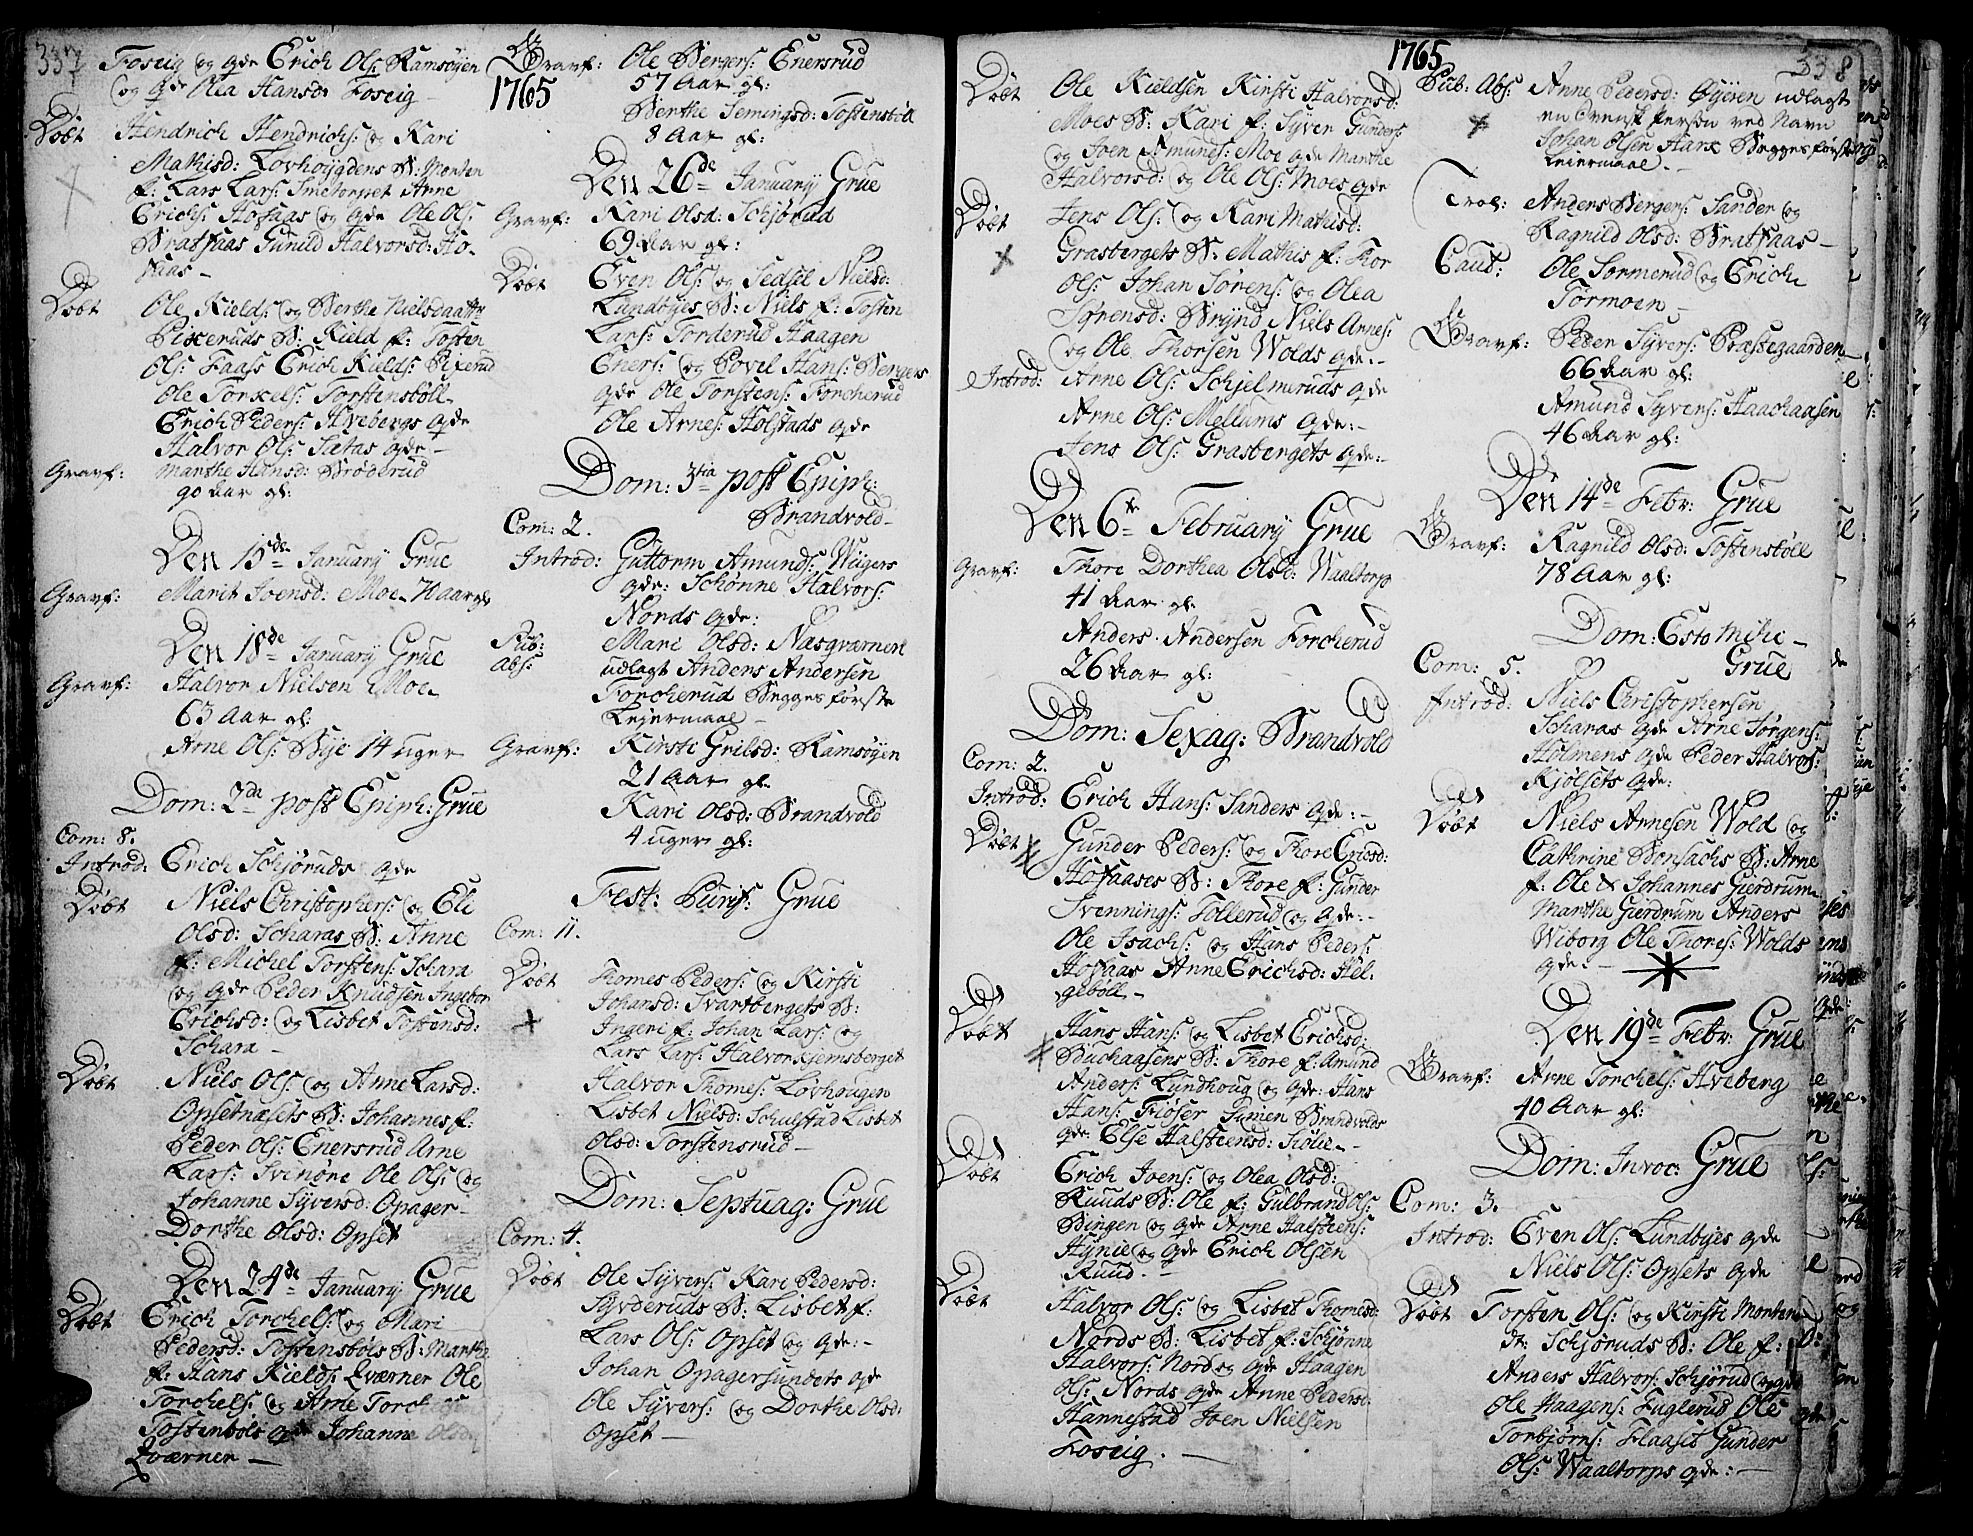 337
Foseig og qde Erich Ols: Ramsøyen
og qde Olea Hansd: Foseig
Døbt Hendrich Hendrichs: og Kari
Mathisd: Lovhoygdens B: Morten
f: Lars Lars: Smetorpet Arne
Erichs: Hofaas og qde Ole Ols:
Bratfaas Gunild Halvorsd: Ho-
faas -
Døbt Ole Kields: og Berthe Nielsdaatter
Pixeruds B: Kield f: Tosten
Ols: Faass Erich Kields: Pixerud
Ole Torxels: Torstensböll
Erich Peders: Hvebergs qde
Halvor Ols: Sætas qde -
Gravf: Marthe Hansd: Brøderud
90 Aar gl:
Den 15de January Grue
Gravf: Marit Joensd: Moe 70 aar gl:
Den 18de January Grue
Gravf: Halvor Nielsen Moe
63 Aar gl:
Arne Ols: Bye 14 uger
Dom: 2de post Epiph: Grue
Com: 8.
Introd: Erich Schjøruds qde
Døbt Niels Christophers: og Eli
Olsd: Scharas B: Anne
f: Michel Torstens: Schara
og qde Peder Knudsen Ingebor
Erichsd: og Lisbet Tostensd:
Schara -
Døbt Niels Ols: og Anne Larsd:
Opsetnæsets B: Johannes f:
Peder Ols: Enersrud Arne
Lars: Svinøne Ole Ols: og
Johanne Syversd: Opager
Dorthe Olsd: Opset
Den 24de January Grue
Døbt Erich Torchels: og Mari
Pedersd: Tostensbøls B: Marthe
f: Hans Kields: Qværner Ole
Torchels: og Arne Torchels
Tostenbøls qde Johanne Olsd:
Qværner -
Gravf: Ole Bergers: Enersrud
1765 57 Aar gl:
Berthe Semingsd: Tostensböl
8 Aar gl:
Den 26de January Grue
Gravf: Kari Olsd: Schjørud
69 Aar gl:
Døbt Even Ols: og Sedsel Nielsd:
Lundbyes B: Niels f: Tosten
Lars: Torderud Haagen
Eners: og Povel Hans: Bergers
qde Ole Torstens: Forcherud
Ole Arnes: Holstads qde
Dom: 3tia post Epiph:
Brandvold
Com: 2.
Introd: Guttorm Amunds: Wigers
qde: Schønne Halvors:
Nords qde:
Pub: Mari Olsd: Næsqværnen
abs: udlagt Anders Andersen
Forcherud Begges første
Lejermaal -
Gravf: Kirsti Grilsd: Ramsøyen
21 Aar gl:
Kari Olsd: Brandvold
4 uger gl:
Fest: Purif: Grue
Com: 11.
Døbt Thomes Peders: og Kirsti
Johansd: Svartbergets B:
Ingeri f: Johan Lars: og
Lars Lars: Halvor Kjernsberget
Halvor Thomes: Lovhougen
Lisbet Nielsd: Schulstad Lisbet
Olsd: Torstensrud -
Dom: Septuag: Grue
Com: 4.
Døbt Ole Syvers: Kari Pedersd:
Syvderuds B: Lisbet f:
Lars Ols: Opset og qde: -
Johan Opagersundets qde
Ole Syvers: og Dorthe Olsd:
Opset -
1765 338
Døbt Ole Kieldsen Kirsti Halvorsd:
Moes B: Kari f: Syver Gunders
og Joen Amunds: Moe qde Marthe
Halvorsd: og Ole Ols: Moes qde
Døbt Jens Ols: og Kari Mathisd:
Grasbergets B: Mathis f: Thor
Ols: Johan Sørens: og Olea
Sørensd: Brynd Niels Arnes:
og Ole Thorsen Wolds qde: -
Introd: Arne Ols: Schjelmeruds qde
Arne Ols: Mellums qde: -
Jens Ols: Grasbergets qde: -
Den 6te February Grue
Gravf: Thore Dorthea Olsd: Waaltorp
41 Aar gl:
Anders Andersen Forcherud
26 Aar gl:
Dom: Sexag: Brandvold
Com: 2.
Introd: Erich Hans: Sanders qde: -
Døbt Gunder Peders: og Thore Ericsd:
Hofaases B: Thore f: Gunder
Svennings: Tollerud og qde: -
Ole Isachs: og Hans Peders:
Hofaas Anne Erichsd: Hel-
geböll -
Døbt Hans Hans: og Lisbet Erichsd:
Buchaasens B: Thore f: Amund
Anders: Lundhoug og qde: Hans
Hans: Fløser Simen Brandvolds
qde: Else Halsteensd: Kølie -
Døbt Erich Joens: og Olea Olsd:
Ruuds B: Ole f: Gulbrand Ols:
Bingen og qde Arne Halsteens:
Hynie og qde Erich Olsen
Ruud. -
Døbt Halvor Ols: og Lisbet Thomesd:
Nords B: Lisbet f: Schjønne
Halvors: Nord og qde Haagen
Ols: Nords qde Anne Pedersd:
Hannestad Joen Nielsen
Foseig. -
Pub: Abs: Anne Pedersd: Øyeren udlagt
en Svensk Person ved Navn
Johan Olsen Hare Begges første
Leiermaal -
Trol: Anders Bergers: Sander og
Ragnild Olsd: Bratfaas -
Caut: Ole Sormerud og Erich
Tormoen -
Gravf: Peder Syvers: Præstegaarden
66 Aar gl:
Amund Syvers: Haachaasen
46 Aar gl:
Den 14de Febr: Grue
Gravf: Ragnild Olsd: Tostensböll
78 Aar gl:
Dom: Esto Mihi -
Com: 5. Grue
Introd: Niels Christophersen
Scharas qde Arne Jørgens:
Holmens qde Peder Halvors:
Kjølsets qde:
Døbt Niels Arnesen Wold og
Cathrine Bonsachs B: Arne
f: Ole & Johannes Gierdrum
Marthe Gierdrum Anders
Wiborg Ole Thores: Wolds
qde: -
Den 19de Febr: Grue
Gravf: Arne Torchels: Hveberg
40 Aar gl:
Dom: Invoc: Grue
Com: 3.
Introd: Even Ols: Lundbyes qde
Niels Ols: Opsets qde
Døbt Torsten Ols: og Kirsti Morten
dr: Schjøruds B: Ole f:
Anders Halvors: Schjørud og qde
Ole Haagens: Fuglerud Ole
Torbjørns: Flaaset Gunder
Ols: Waaltorps qde: -